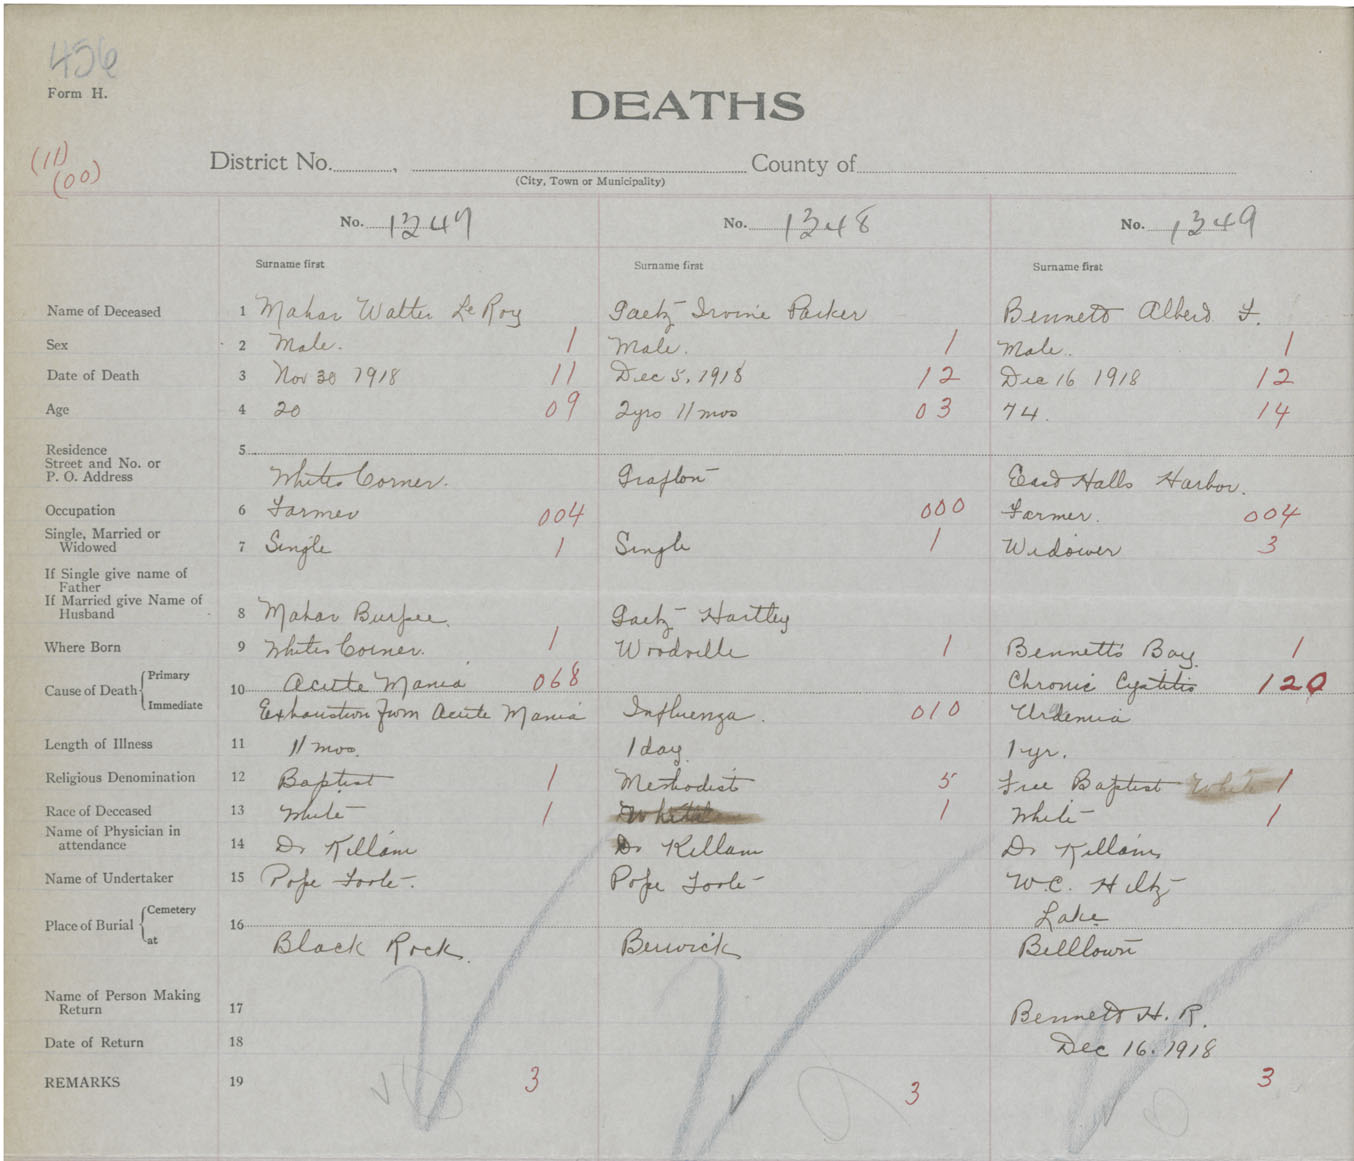 456
Form H.
DEATHS
(11)
(00)
District No. , County of
(City, Town or Municipality)
No. 1247 No. 1348 No. 1349
Surname first Surname first Surname first
Name of Deceased 1 Mahar Walter LeRoy Gaetz Irvine Parker Bennett Albert F.
Sex 2 Male. 1 Male. 1 Male. 1
Date of Death 3 Nov 30 1918 11 Dec 5, 1918 12 Dec 16 1918 12
Age 4 20 09 2yrs 11 mos 03 74. 14
Residence 5
Street and No. or
P. O. Address Whites Corner. Grafton East Halls Harbor.
Occupation 6 Farmer 004 000 Farmer. 004
Single, Married or
Widowed 7 Single 1 Single 1 Widower 3
If Single give name of
Father
If Married give Name of
Husband 8 Mahar Burpee. Gaetz Hartley
Where Born 9 Whites Corner. 1 Woodville 1 Bennetts Bay 1
Cause of Death Primary 10 Acute Mania 068 Chronic Cystitis 120
Immediate Exhaustion from Acute Mania Influenza. 010 Uraemia
Length of Illness 11 11 mos. 1 day 1 yr.
Religious Denomination 12 Baptist 1 Methodist 5 Free Baptist White 1
Race of Deceased 13 White 1 White 1 White 1
Name of Physician in
attendance 14 Dr Killam Dr Killam Dr Killam
Name of Undertaker 15 Pope Foote. Pope Foote W.C. Hiltz
Place of Burial Cemetery 16 Lake
at Black Rock. Berwick Belltown
Name of Person Making
Return 17 Bennett H. R.
Date of Return 18 Dec 16. 1918
REMARKS 19 3 3 3